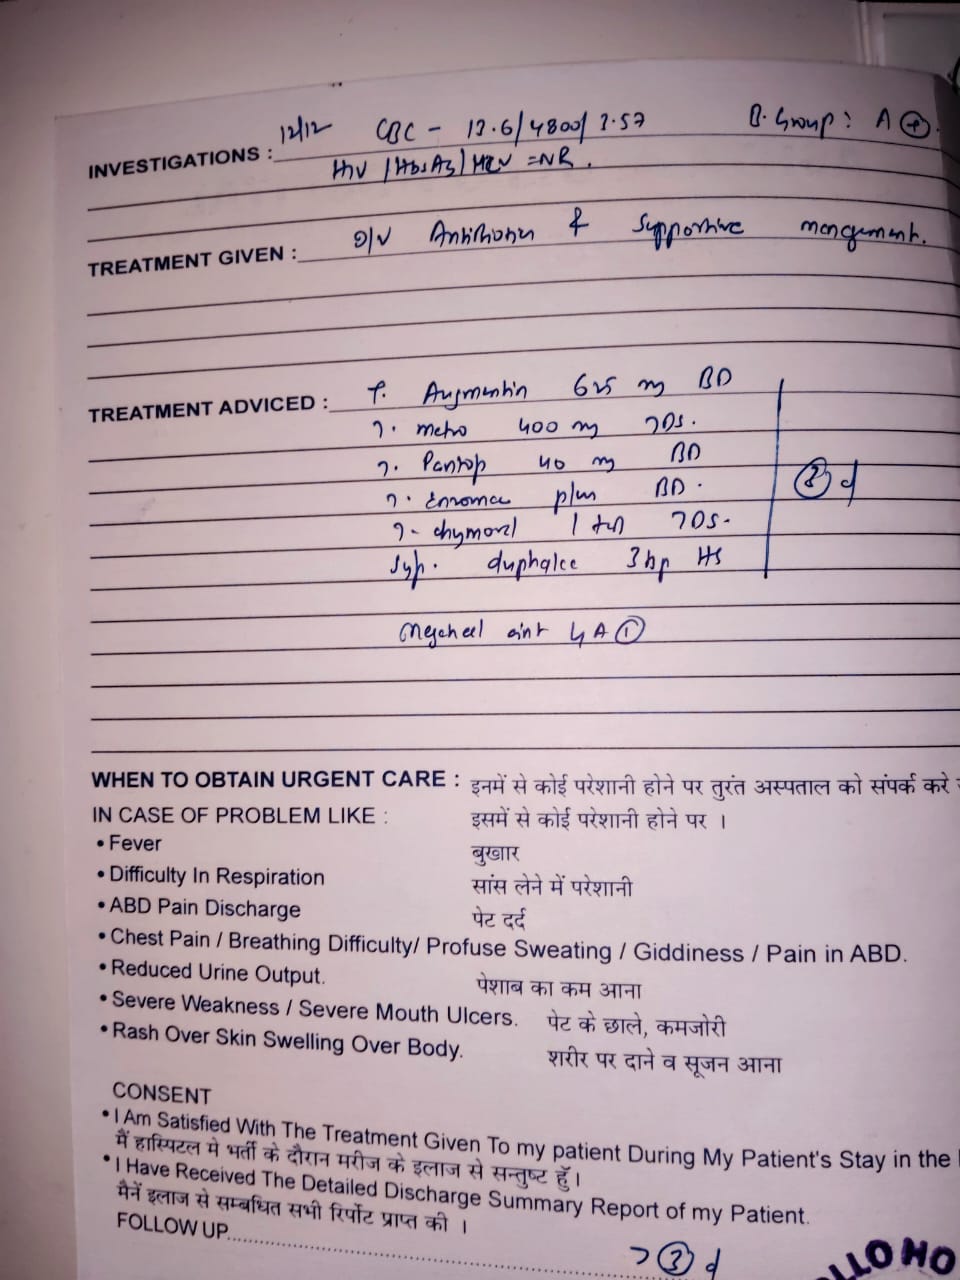 12/12 CBC - 13.6/4800/3.57 B. Group: A ⊕.
INVESTIGATIONS :
HIV / HbsAg / HCV = NR.
TREATMENT GIVEN : & supportive
TREATMENT ADVICED : T. Augmentin 625 mg BD
T. metro 400 mg TDS.
T. Pantop 40 mg BD
T. plus BD.
T. chymoral 1 TDS.
Syp. HS
L A ①
WHEN TO OBTAIN URGENT CARE : इनमें से कोई परेशानी होने पर तुरंत अस्पताल को संपर्क करे
IN CASE OF PROBLEM LIKE : इसमें से कोई परेशानी होने पर ।
• Fever बुखार
• Difficulty In Respiration सांस लेने में परेशानी
• ABD Pain Discharge पेट दर्द
• Chest Pain / Breathing Difficulty/ Profuse Sweating / Giddiness / Pain in ABD.
• Reduced Urine Output. पेशाब का कम आना
• Severe Weakness / Severe Mouth Ulcers. पेट के छाले, कमजोरी
• Rash Over Skin Swelling Over Body. शरीर पर दाने व सूजन आना
CONSENT
• I Am Satisfied With The Treatment Given To my patient During My Patient's Stay in the
मैं हास्पिटल मे भर्ती के दौरान मरीज के इलाज से सन्तुष्ट हूँ।
• I Have Received The Detailed Discharge Summary Report of my Patient.
मैनें इलाज से सम्बधित सभी रिर्पोट प्राप्त की ।
FOLLOW UP........ ③ d
LLO HO